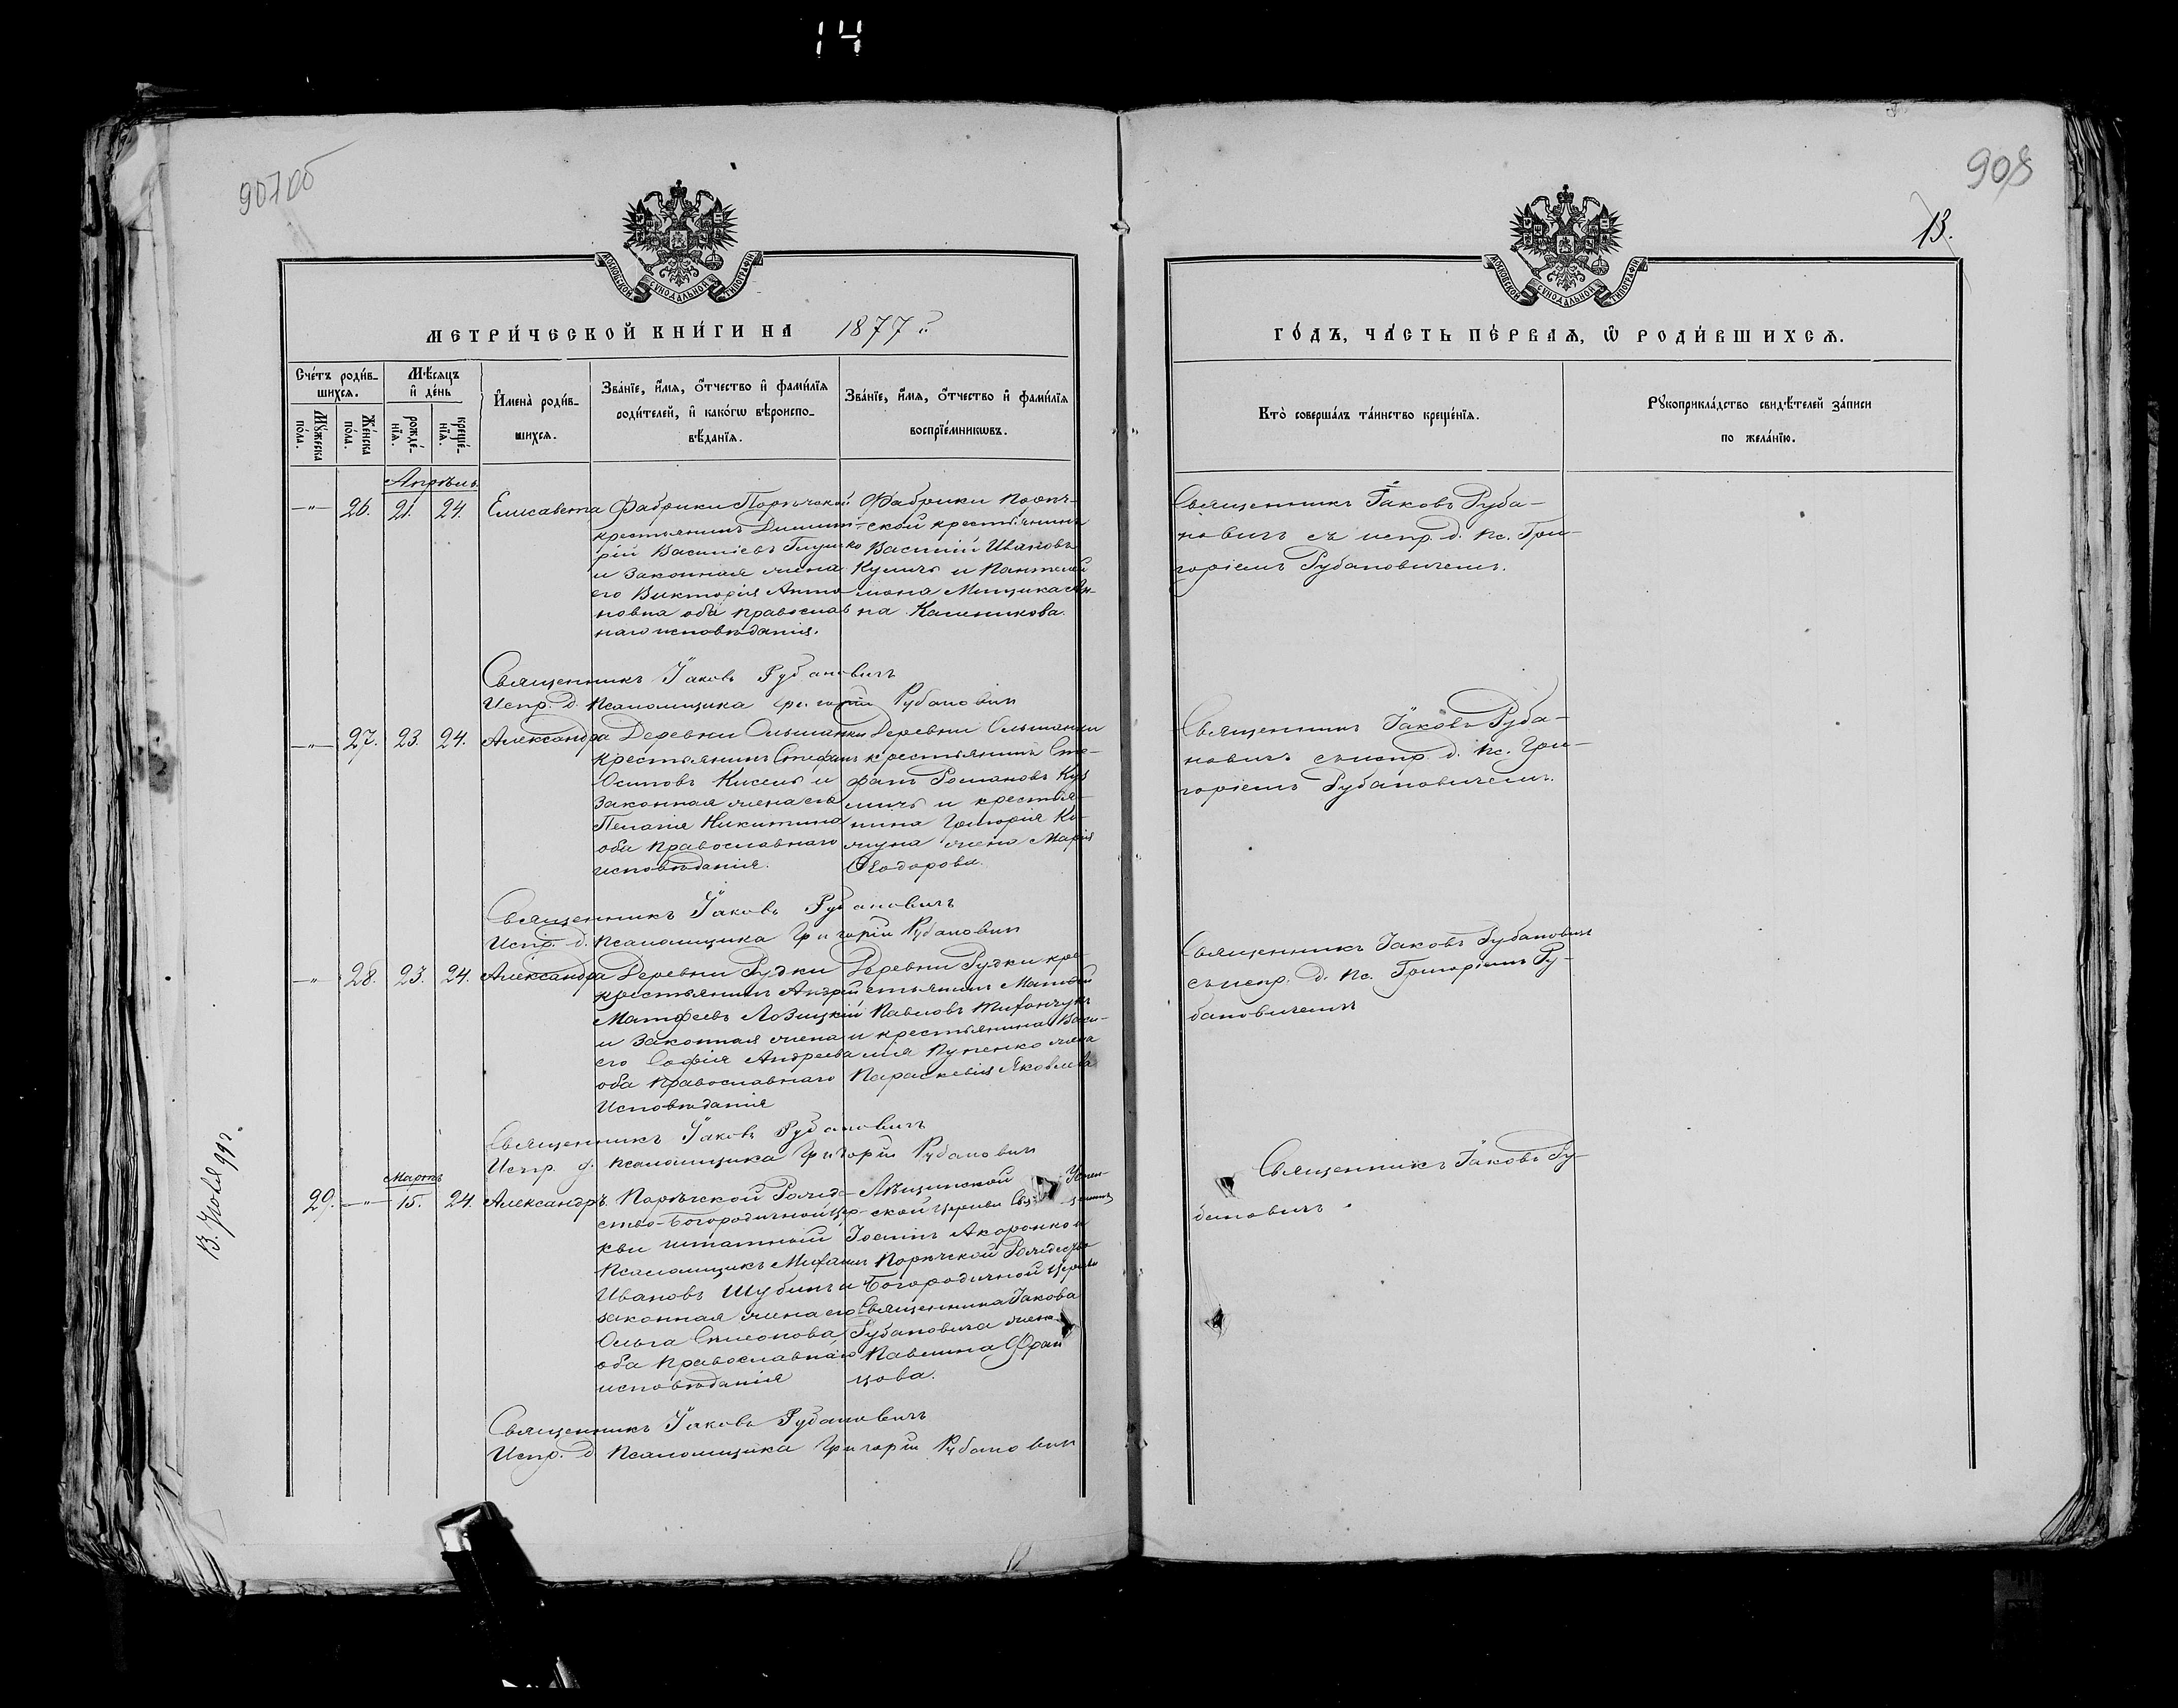 14
907об
908
13.
МОСКОВСКОЙ СѴНОДАЛЬНОЙ ТИПОГРАФІИ
МОСКОВСКОЙ СѴНОДАЛЬНОЙ ТИПОГРАФІИ
МЕТРИ́ЧЕСКОЙ КНИ́ГИ НА 1877 г.
Сче́тъ роди́в-
шихсѧ.
Мꙋ́жеска
по́ла.
Же́нска
по́ла.
Мѣ́сѧцъ
и҆ де́нь
рожде́-
нїѧ.
креще́-
нїѧ.
И҆мена̀ роди́в-
шихсѧ.
Зва́нїе, и҆́мѧ, ѻ҆́тчество и҆ фами́лїѧ
роди́телей, и҆ како́гѡ вѣроиспо-
вѣ́данїѧ.
Зва́нїе, и҆́мѧ, ѻ҆́тчество и҆ фами́лїѧ
воспрїе́мникѡвъ.
Апрѣль
—"— 26. 21. 24. Елисавета
Фабрики Порѣчской
крестьянинъ Димит-
рій Василіевъ Глушко
и законная жена
его Викторія Анто
новна оба православ
наго исповѣданія.
Фабрики Порѣч-
ской крестьянинъ
Василій Ивановъ
Кузмичъ и
на Калиникова.
Священникъ Іаковъ Рубановичъ
Испр. д. Псаломщика Григорій Рубанович
—"— 27. 23. 24. Александра
Деревни Ольшанки
крестьянинъ Стефанъ
Осиповъ Кисель и
законная жена его
Пелагія Никитина
оба православнаго
исповѣданія.
Деревни Ольшанки
крестьянинъ Сте-
фанъ Романовъ Куз
мичъ и крестья-
нина Григорія Ко
жена Марія
Ѳеодорова.
Священникъ Іаковъ Рубановичъ
Испр. д. Псаломщика Григорій Рубанович
—"— 28. 23. 24. Александра
Деревни Рудки
крестьянинъ Андрей
Матфеевъ Лозицкій
и законная жена
его Софія Андреева
оба православнаго
Исповѣданія
Деревни Рудки кре
стьянинъ Матфей
Павловъ Тифанчукъ
и крестьянина Васи-
лія жена
Параскевія Яковлева
Священникъ Іаковъ Рубановичъ
Испр. д. Псаломщика Григорій Рубанович
Мартъ
29. —"— 15. 24. Александръ.
Порѣчской Рожде-
ство-Богородичной цер-
кви штатный
Псаломщикъ Михаилъ
Ивановъ Шубинъ и
законная жена его
Ольга Симонова
оба православнаго
исповѣданія
Успен-
ской церкви Священникъ
Іоаннъ и
Порѣчской Рождество
Богородичной церкви
Священника Іакова
Рубановича жена
Павлина Фран
цова.
Священникъ Іаковъ Рубановичъ
Испр. д Псаломщика Григорій Рубанович
13. Іюля 99г.
ГО́ДЪ, ЧА́СТЬ ПЕ́РВАѦ, Ѡ҆ РОДИ́ВШИХСѦ.
Кто̀ соверша́лъ та́инство креще́нїѧ.
Рꙋкоприкла́дство свидѣ́телей за́писи
по жела́нїю.
Священникъ Іаковъ Руба-
новичъ съ испр. д. пс. Гри-
горіемъ Рубановичемъ.
Священникъ Іаковъ Руба-
новичъ съ испр. д. пс. Гри-
горіемъ Рубановичемъ.
Священникъ Іаковъ Рубановичъ
съ испр. д. пс. Григоріемъ Ру-
бановичемъ
Священникъ Іаковъ Ру-
бановичъ.